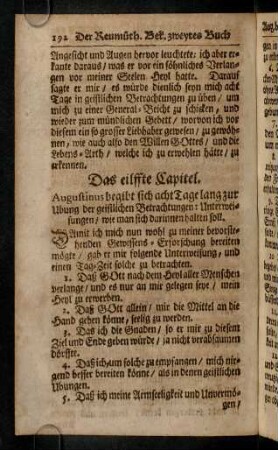 192 Der Reumüth. Bek. zweytes Buch
Angesicht und Augen hervor leuchtete; ich aber er-
kante daraus / was er vor ein söhnliches Verlan-
gen vor meiner Seelen Heyl hatte. Darauf
sagte er mir / es würde dienlich seyn mich acht
Tage in geistlichen Betrachtungen zu üben / um
mich zu einer General-Beicht zu schicken / und
wieder zum mündlichen Gebett / worvon ich vor
diesem ein so grosser Liebhaber gewesen / zu gewöh-
nen / wie auch also den Willen GOttes / und die
Lebens-Arth / welche ich zu erwehlen hätte / zu
erkennen.
Das eilffte Capitel.
Augustinus begibt sich acht Tage lang zur
Ubung der geistlichen Betrachtungen: Unterwei-
sungen / wie man sich darinnen halten soll.
DAmit ich mich nun wohl zu meiner bevorste-
henden Gewissens-Erforschung bereiten
mögte / gab er mir folgende Unterweisung / und
einen Tag-Zeit solche zu betrachten.
1. Daß GOtt nach dem Heyl aller Menschen
verlange / und es nur an mir gelegen seye / mein
Heyl zu erwerben.
2. Daß GOtt allein / mir die Mittel an die
Hand geben könne / seelig zu werden.
3. Das ich die Gnaden / so er mir zu diesem
Ziel und Ende geben würde / ja nicht verabsaumen
dörffte.
4. Daß ich um solche zu empfangen / mich nir-
gend besser bereiten könne / als in denen geistlichen
Ubungen.
5. Daß ich meine Armseeligkeit und Unvermö-
gen /